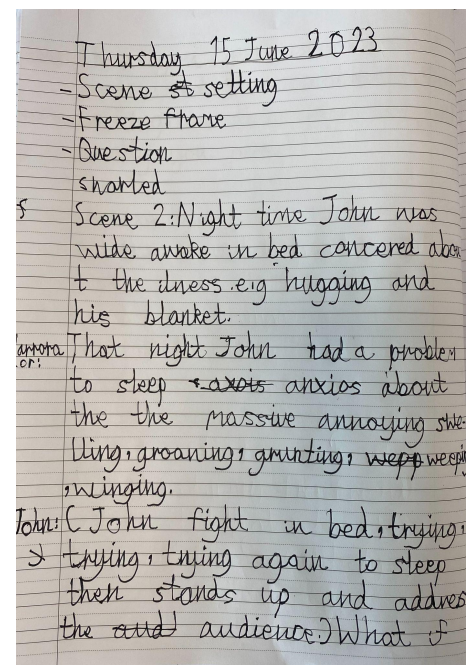 Thursday 15 June 2023
- Scene st setting
- Freeze frame
- Question
snarled
Scene 2: Night time John was
wide awake in bed concered abou
t the ilness .e.g hugging and
his blanket.
arrora That night John had a problem
or: to sleep axois anxios about
the the massive annoying
lling, groaning, grunting, wepp weepin
, winging.
John: (John fight in bed, trying,
trying, trying again to sleep
then stands up and addres
the aud audience.) What if